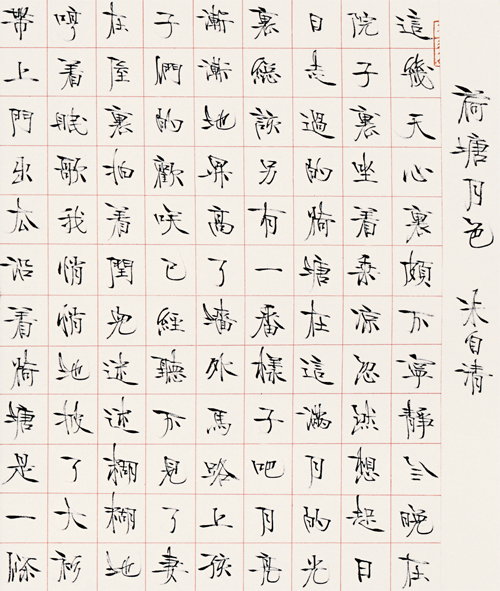 荷塘月色 朱自清
這幾天心裏頗不寧靜今晚在
院子裏坐着乘涼忽然想起日
日走過的荷塘在這滿月的光
裏總該另有一番樣子吧月亮
漸漸地昇高了牆外馬路上孩
子們的歡咲已經聽不見了妻
在屋裏拍着閏兒迷迷糊糊地
哼着眠歌我悄悄地披了大衫
帶上門出去沿着荷塘是一條